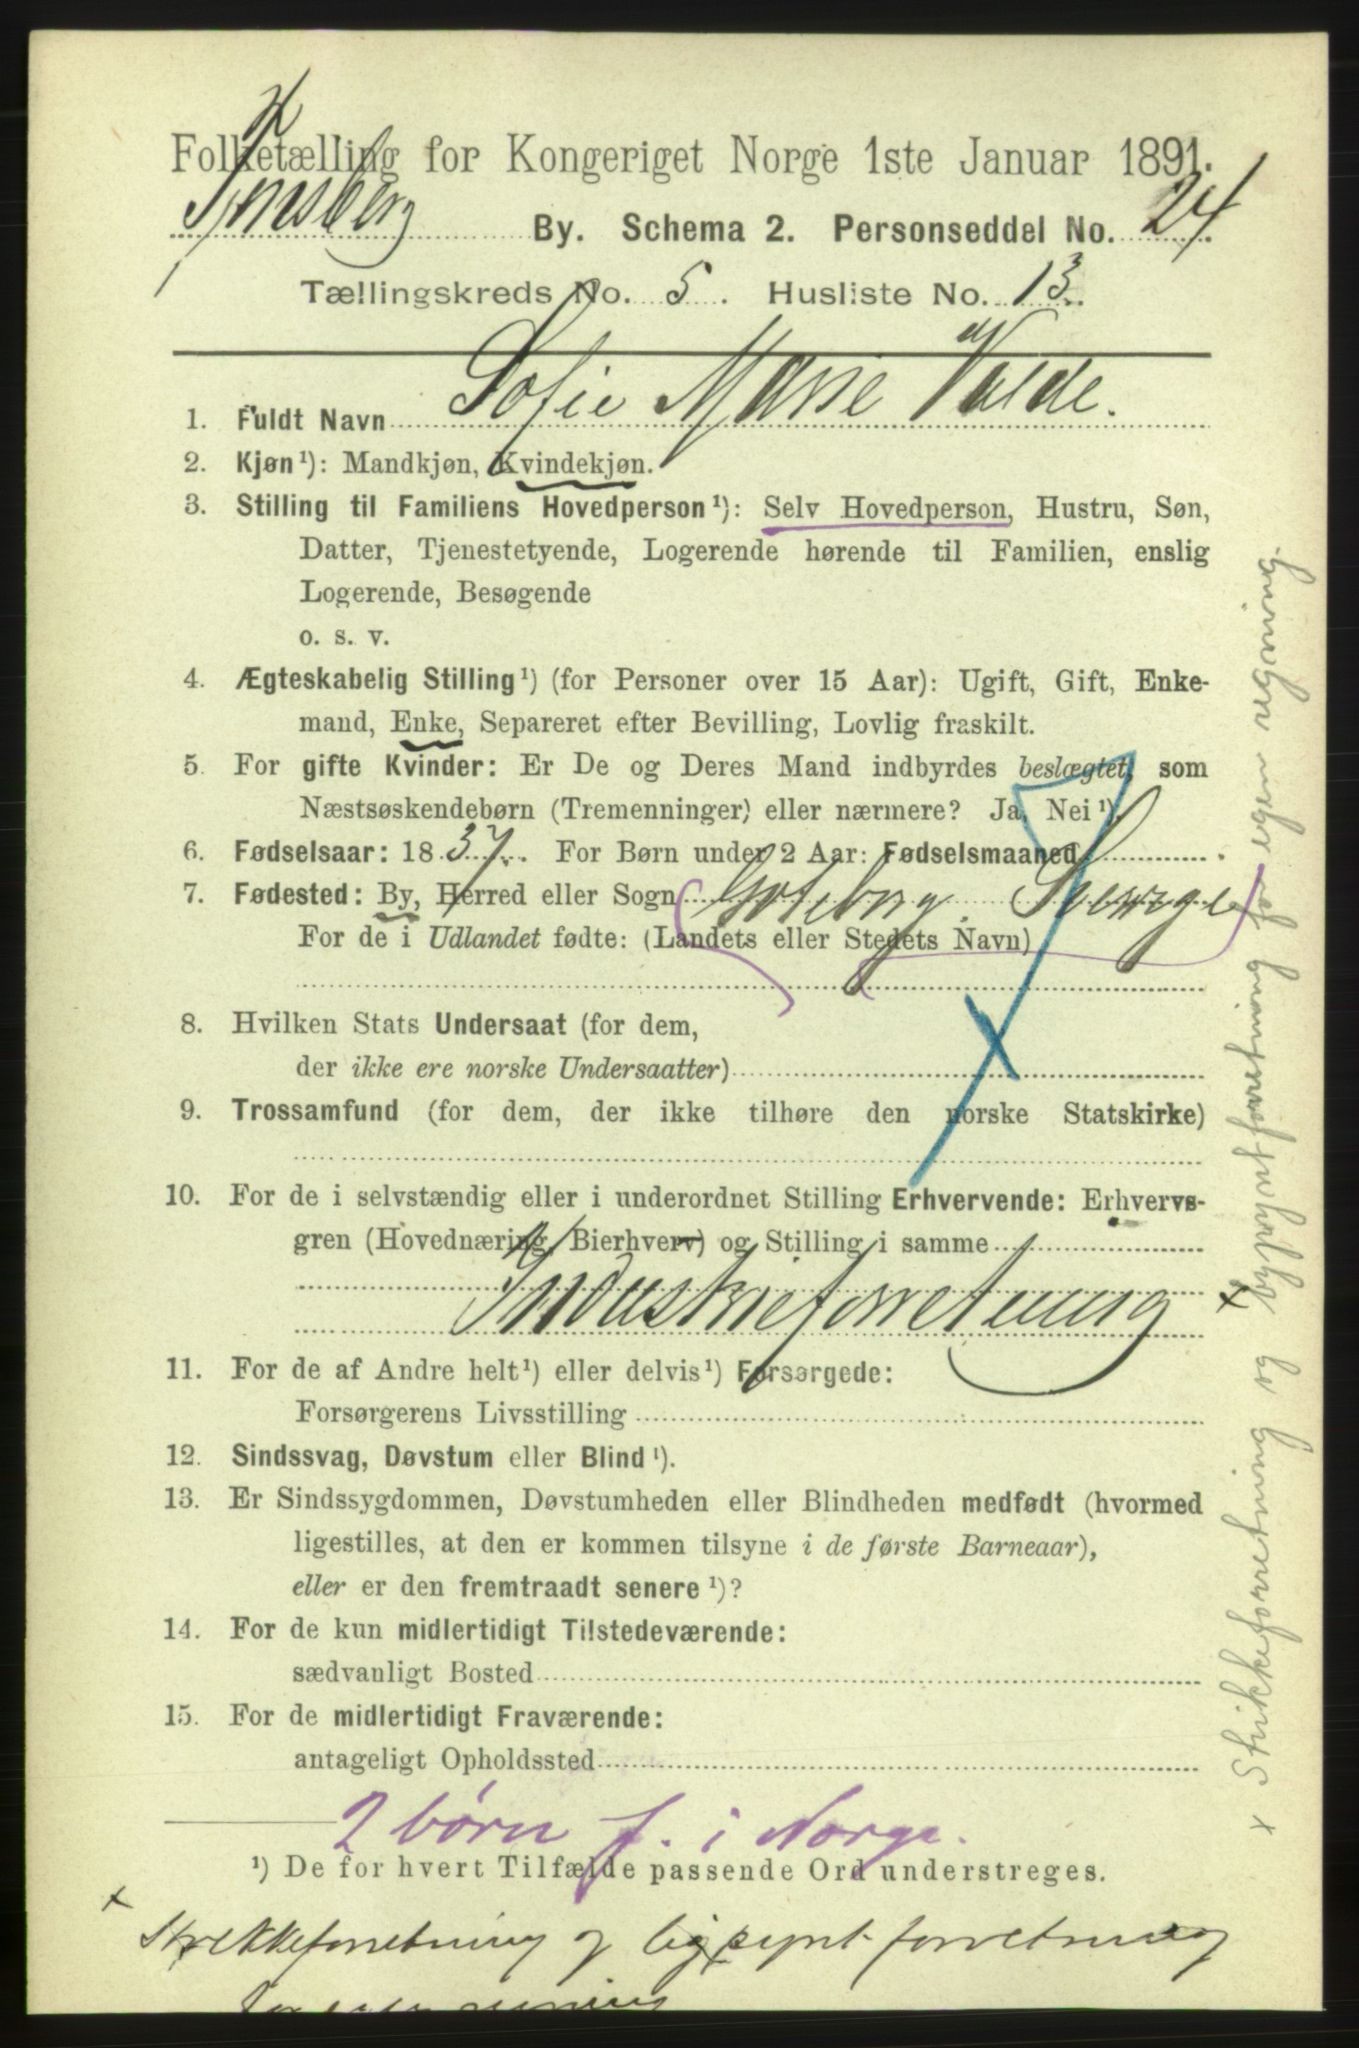 Folketælling for Kongeriget Norge 1ste Januar 1891.
Tønsberg By. Schema 2. Personseddel No. 24.
Tællingskreds No. 5. Husliste No. 13.
1. Fuldt Navn Sofie Marie Valde.
2. Kjøn ¹): Mandkjøn, Kvindekjøn.
3. Stilling til Familiens Hovedperson ¹): Selv Hovedperson, Hustru, Søn,
Datter, Tjenestetyende, Logerende hørende til Familien, enslig
Logerende, Besøgende
o. s. v.
4. Ægteskabelig Stilling ¹) (for Personer over 15 Aar): Ugift, Gift, Enke-
mand, Enke, Separeret efter Bevilling, Lovlig fraskilt.
5. For gifte Kvinder: Er De og Deres Mand indbyrdes beslægtet, som
Næstsøskendebørn (Tremenninger) eller nærmere? Ja, Nei ¹).
6. Fødselsaar: 1837. For Børn under 2 Aar: Fødselsmaaned
7. Fødested: By, Herred eller Sogn Gøteborg. Sverige
For de i Udlandet fødte: (Landets eller Stedets Navn)
8. Hvilken Stats Undersaat (for dem,
der ikke ere norske Undersaatter)
9. Trossamfund (for dem, der ikke tilhøre den norske Statskirke)
10. For de i selvstændig eller i underordnet Stilling Erhvervende: Erhvervs-
gren (Hovednæring, Bierhverv) og Stilling i samme
Industrieforretning x
11. For de af Andre helt ¹) eller delvis ¹) Forsørgede:
Forsørgerens Livsstilling
12. Sindssvag, Døvstum eller Blind ¹).
13. Er Sindssygdommen, Døvstumheden eller Blindheden medfødt (hvormed
ligestilles, at den er kommen tilsyne i de første Barneaar),
eller er den fremtraadt senere ¹)?
14. For de kun midlertidigt Tilstedeværende:
sædvanligt Bosted
15. For de midlertidigt Fraværende:
antageligt Opholdssted
2 børn f. i Norge.
¹) De for hvert Tilfælde passende Ord understreges.
x
Strikkeforretning og forretning
for egen regning
x Strikkeforretning og forretning for egen regning.